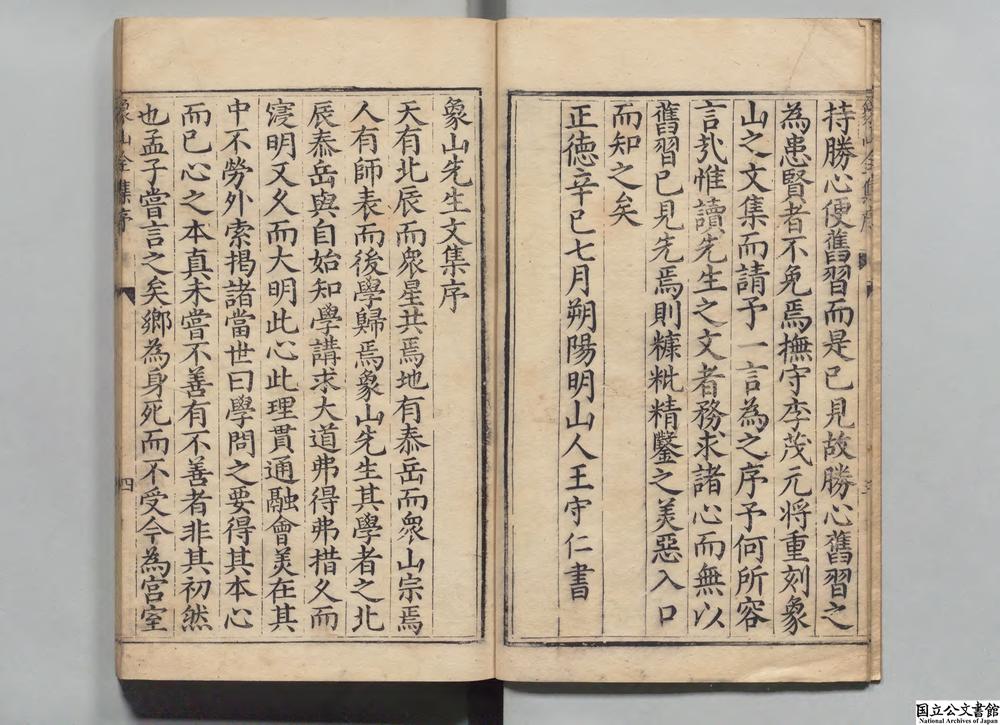 持勝心便舊習而是已見故勝心舊習之
為患賢者不免焉撫守李茂元将重刻象
山之文集而請予一言為之序予何所容
言㢤惟讀先生之文者務求諸心而無以
舊習已見先焉則糠粃精鑿之美惡入口
而知之矣
正德辛巳七月朔陽明山人王守仁書
象山先生文集序
天有北辰而衆星共焉地有泰岳而衆山宗焉
人有師表而後學歸焉象山先生其學者之北
辰泰岳與自始知學講求大道弗得弗措久而
寖明又久而大明此心此理貫通融會美在其
中不勞外索揭諸當世曰學問之要得其本心
而已心之本真未嘗不善有不善者非其初然
也孟子嘗言之矣鄉為身死而不受今為宮室
象山全集序
四
国立公文書館
National Archives of Japan